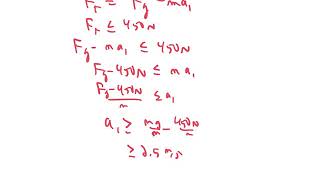 F_T = F_g - ma_1
F_T ≤ 450N
F_g - ma_1 ≤ 450N
F_g - 450N ≤ ma_1
(F_g - 450N)/m ≤ a_1
a_1 ≥ mg/m - 450N/m
≥ 2.5 m/s